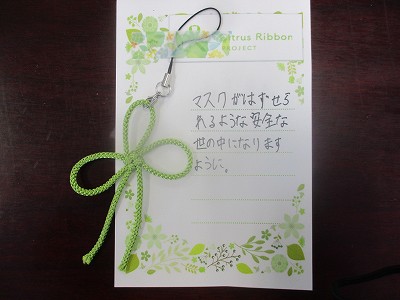 itrus Ribbon
PROJECT
マスクがはずせら
れるような安全な
世の中になります
ように。